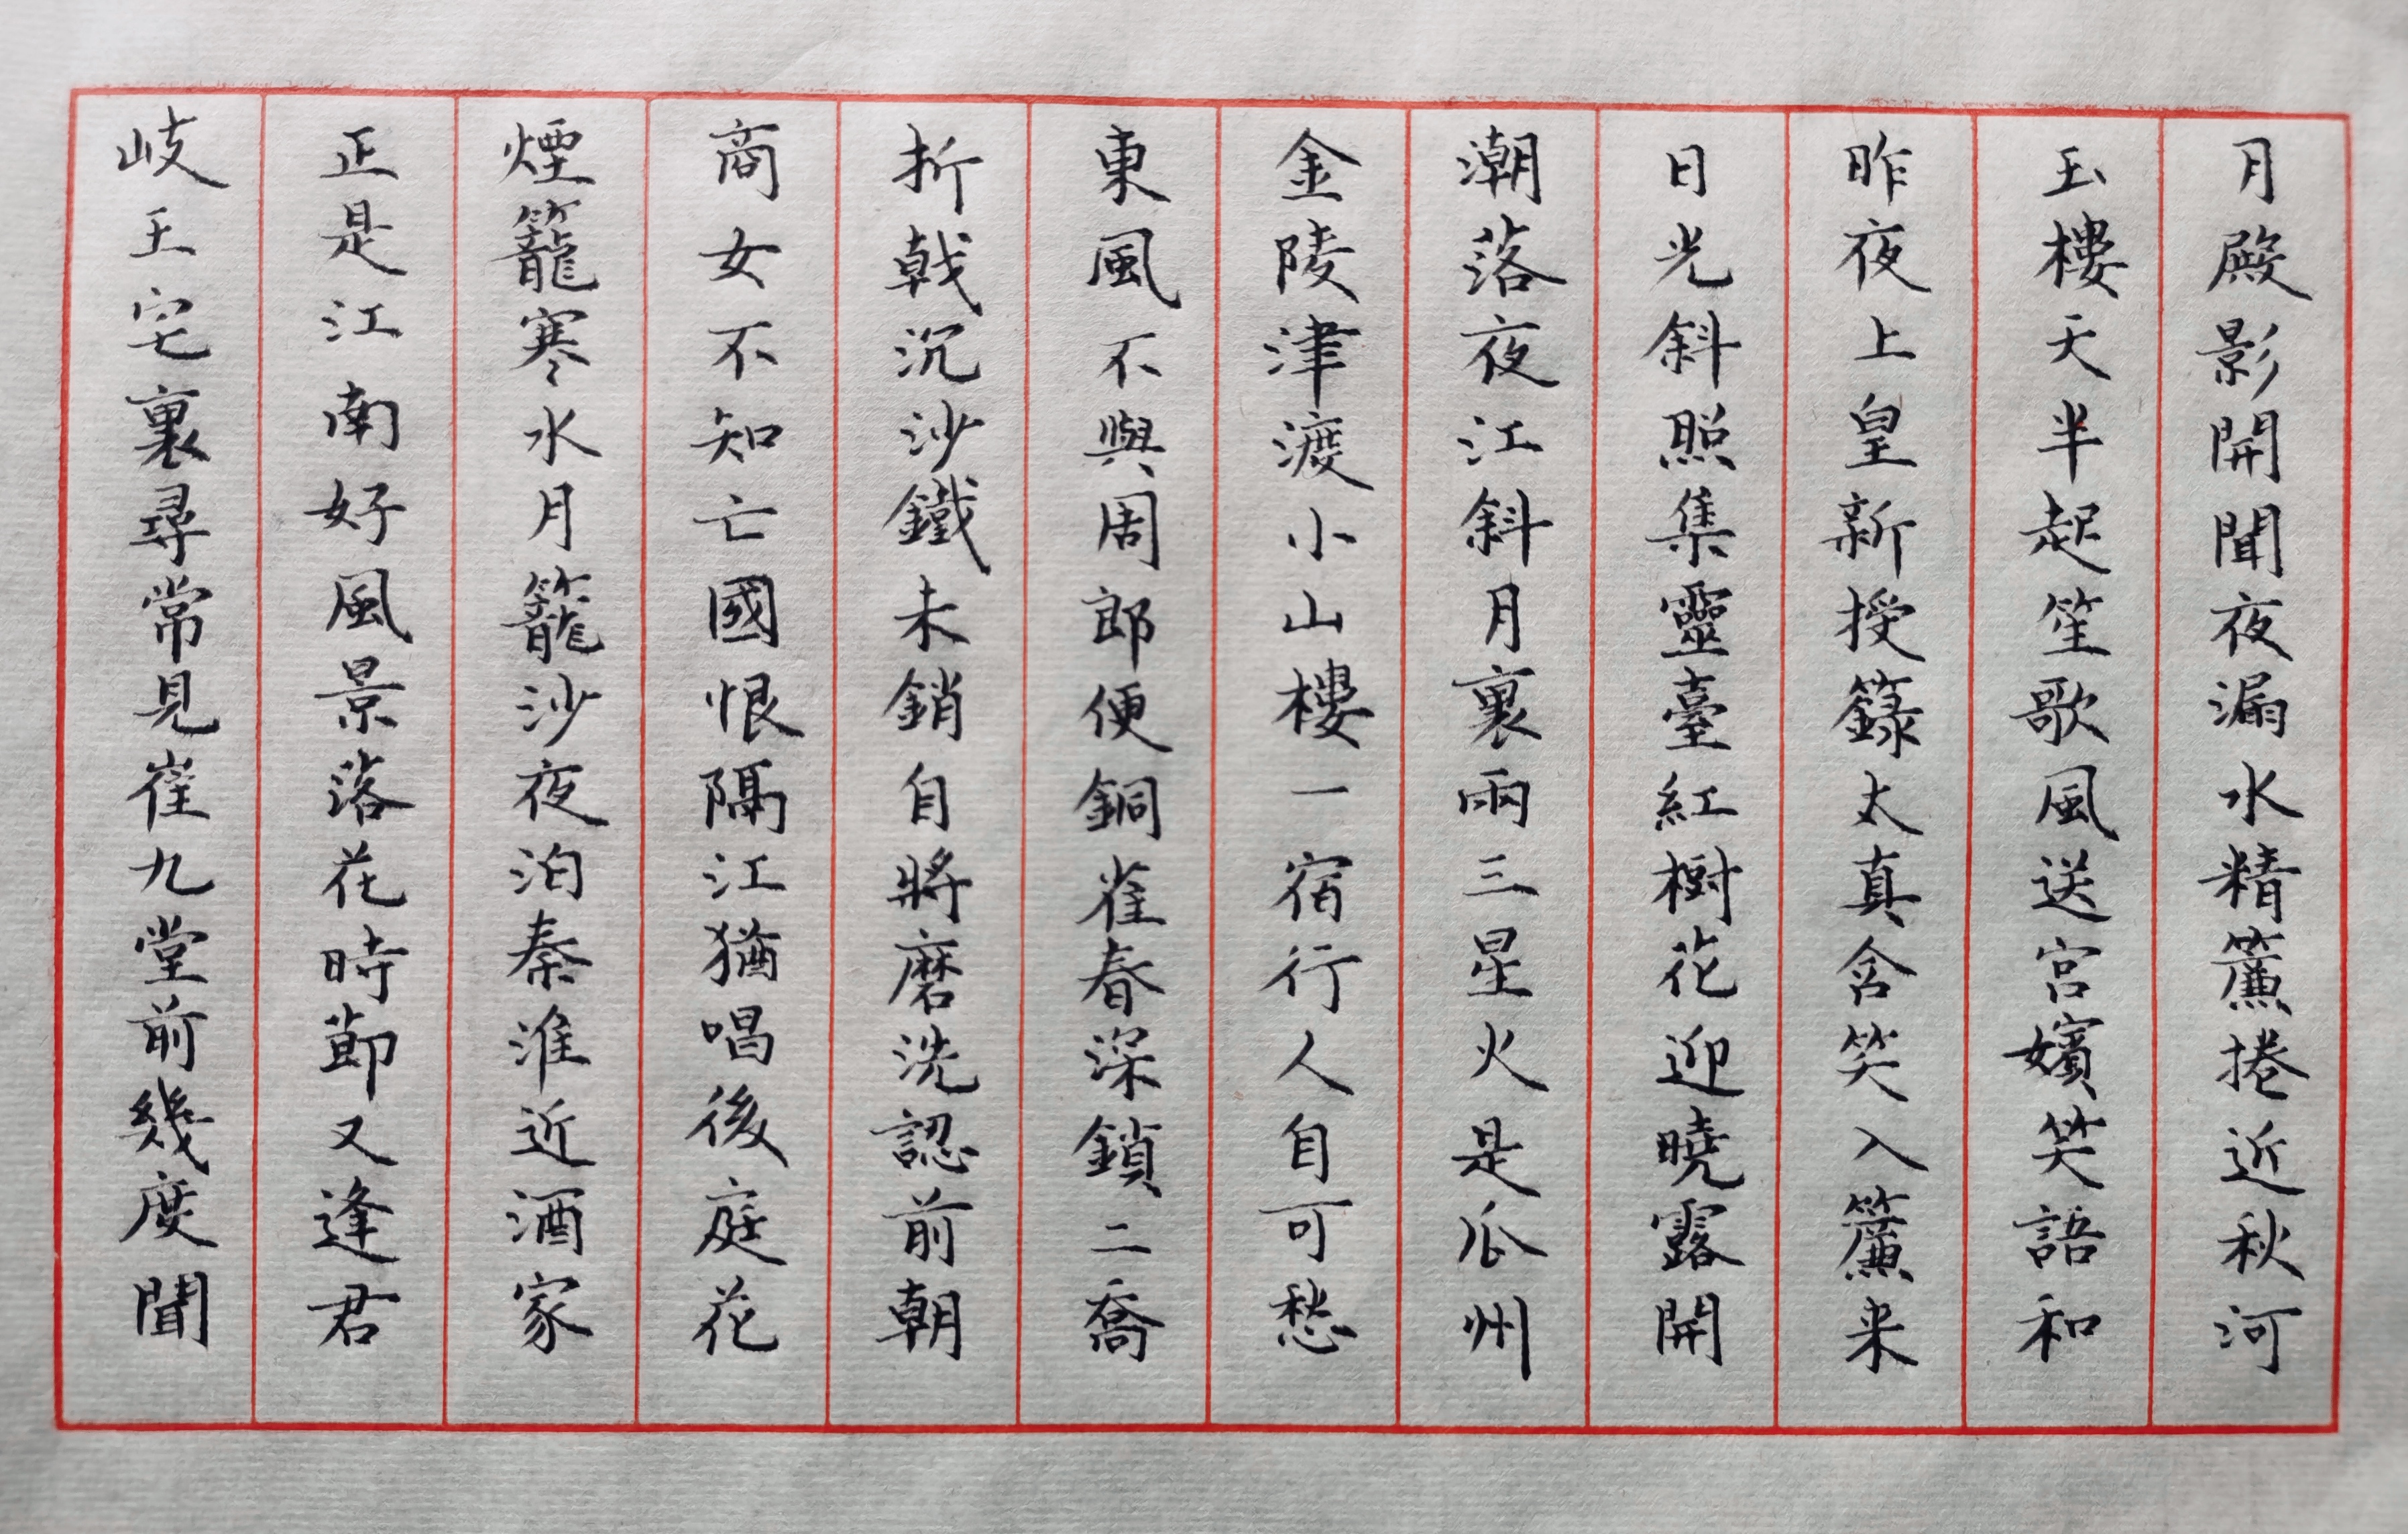 月殿影開聞夜漏水精簾捲近秋河
玉樓天半起笙歌風送宮嬪笑語和
昨夜上皇新授籙太真含笑入簾来
日光斜照集靈臺紅樹花迎曉露開
潮落夜江斜月裏兩三星火是瓜州
金陵津渡小山樓一宿行人自可愁
東風不與周郎便銅雀春深鎖二喬
折戟沉沙鐵未銷自將磨洗認前朝
商女不知亡國恨隔江猶唱後庭花
煙籠寒水月籠沙夜泊秦淮近酒家
正是江南好風景落花時節又逢君
岐王宅裏尋常見崔九堂前幾度聞